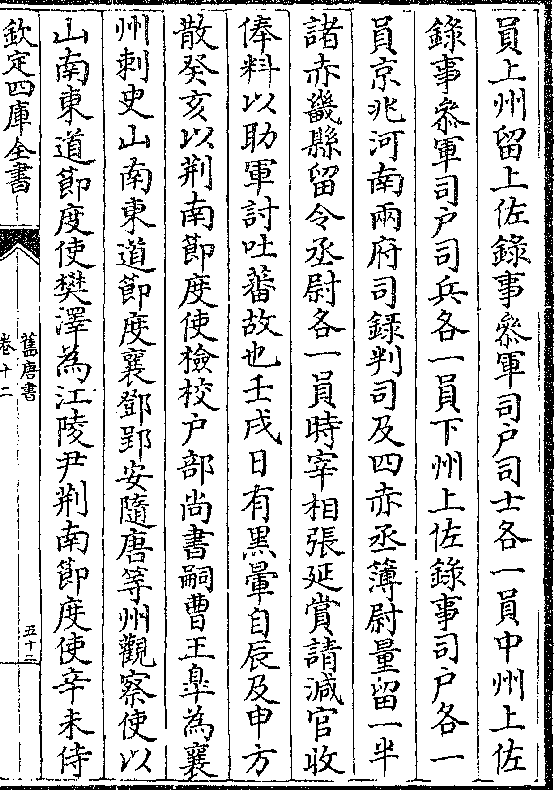 員上州留上佐錄事叅軍司户司士各一員中州上佐
錄事叅軍司户司兵各一員下州上佐錄事司户各一
員京兆河南兩府司錄判司及四赤丞簿尉量留一半
諸赤畿縣留令丞尉各一員時宰相張延賞請減官收
俸料以助軍討吐蕃故也壬戌日有黑暈自辰及申方
散癸亥以荆南節度使檢校户部尚書嗣曹王臯為襄
州刺史山南東道節度襄鄧郢安隨唐等州觀察使以
山南東道節度使樊澤為江陵尹荆南節度使辛未侍
欽定四庫全書
舊唐書
卷十二
五十三